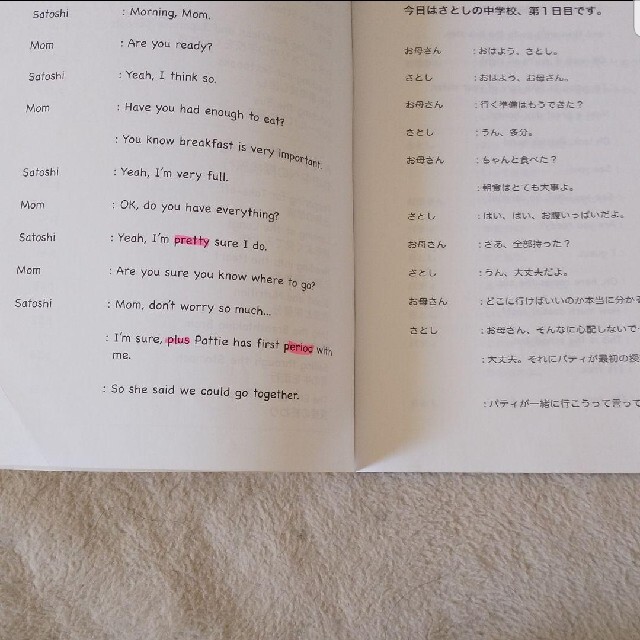 Satoshi : Morning, Mom.
Mom : Are you ready?
Satoshi : Yeah, I think so.
Mom : Have you had enough to eat?
: You know breakfast is very important.
Satoshi : Yeah, I'm very full.
Mom : OK, do you have everything?
Satoshi : Yeah, I'm pretty sure I do.
Mom : Are you sure you know where to go?
Satoshi : Mom, don't worry so much...
: I'm sure, plus Pattie has first period with
me.
: So she said we could go together.
今日はさとしの中学校、第1日目です。
お母さん : おはよう、さとし。
さとし : おはよう、お母さん。
お母さん : 行く準備はもうできた?
さとし : うん、多分。
お母さん : ちゃんと食べた?
: 朝食はとても大事よ。
さとし : はい、はい、お腹いっぱいだよ。
お母さん : さあ、全部持った?
さとし : うん、大丈夫だよ。
お母さん : どこに行けばいいのか本当に分か
さとし : お母さん、そんなに心配しないで
: 大丈夫。それにパティが最初の授
: パティが一緒に行こうって言って